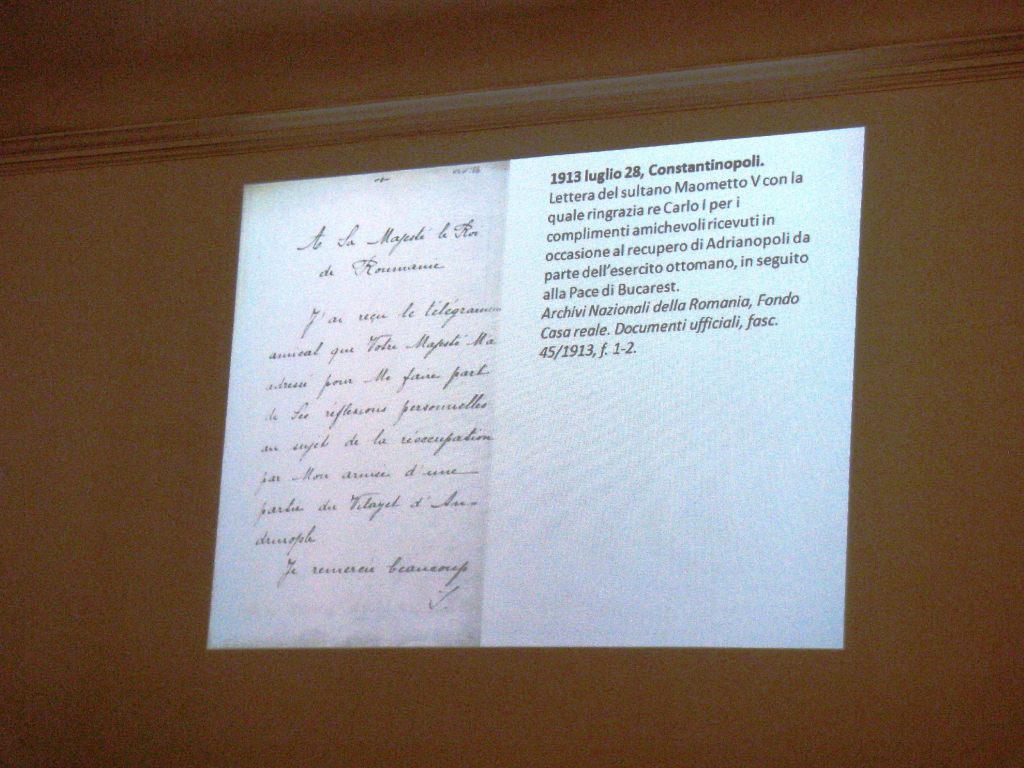 A Sa Majesté le Roi
de Roumanie
J'ai reçu le télégramme
amical que Votre Majesté M'a
adressé pour Me faire part
de Ses réflexions personnelles
au sujet de la réoccupation
par Mon armée d'une
partie du Vilayet d'An-
drinople
Je remercie beaucoup
1913 luglio 28, Constantinopoli.
Lettera del sultano Maometto V con la
quale ringrazia re Carlo I per i
complimenti amichevoli ricevuti in
occasione al recupero di Adrianopoli da
parte dell'esercito ottomano, in seguito
alla Pace di Bucarest.
Archivi Nazionali della Romania, Fondo
Casa reale. Documenti ufficiali, fasc.
45/1913, f. 1-2.